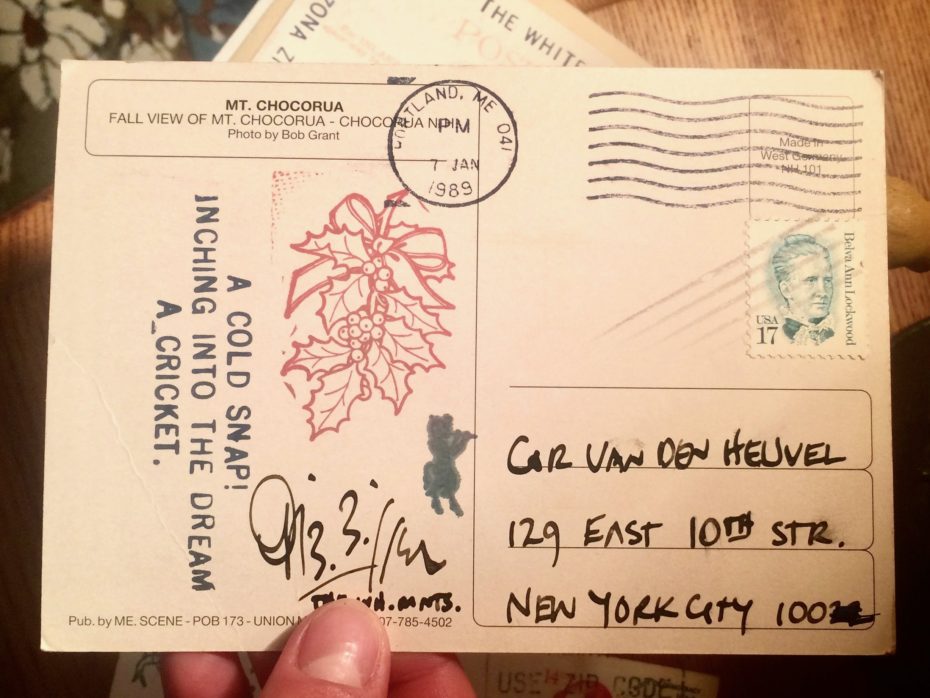 ZONA ZI
THE WHITE
POS
MT. CHOCORUA
FALL VIEW OF MT. CHOCORUA - CHOCORUA N.H.
Photo by Bob Grant
PORTLAND, ME 041
PM
7 JAN
1989
Made in
West Germany
NH 101
Belva Ann Lockwood
USA
17
A COLD SNAP!
INCHING INTO THE DREAM
A_CRICKET.
COR VAN DEN HEUVEL
129 EAST 10TH STR.
NEW YORK CITY 100
THE WH. MNTS.
Pub. by ME. SCENE - POB 173 - UNION 07-785-4502
USE ZIP CODE